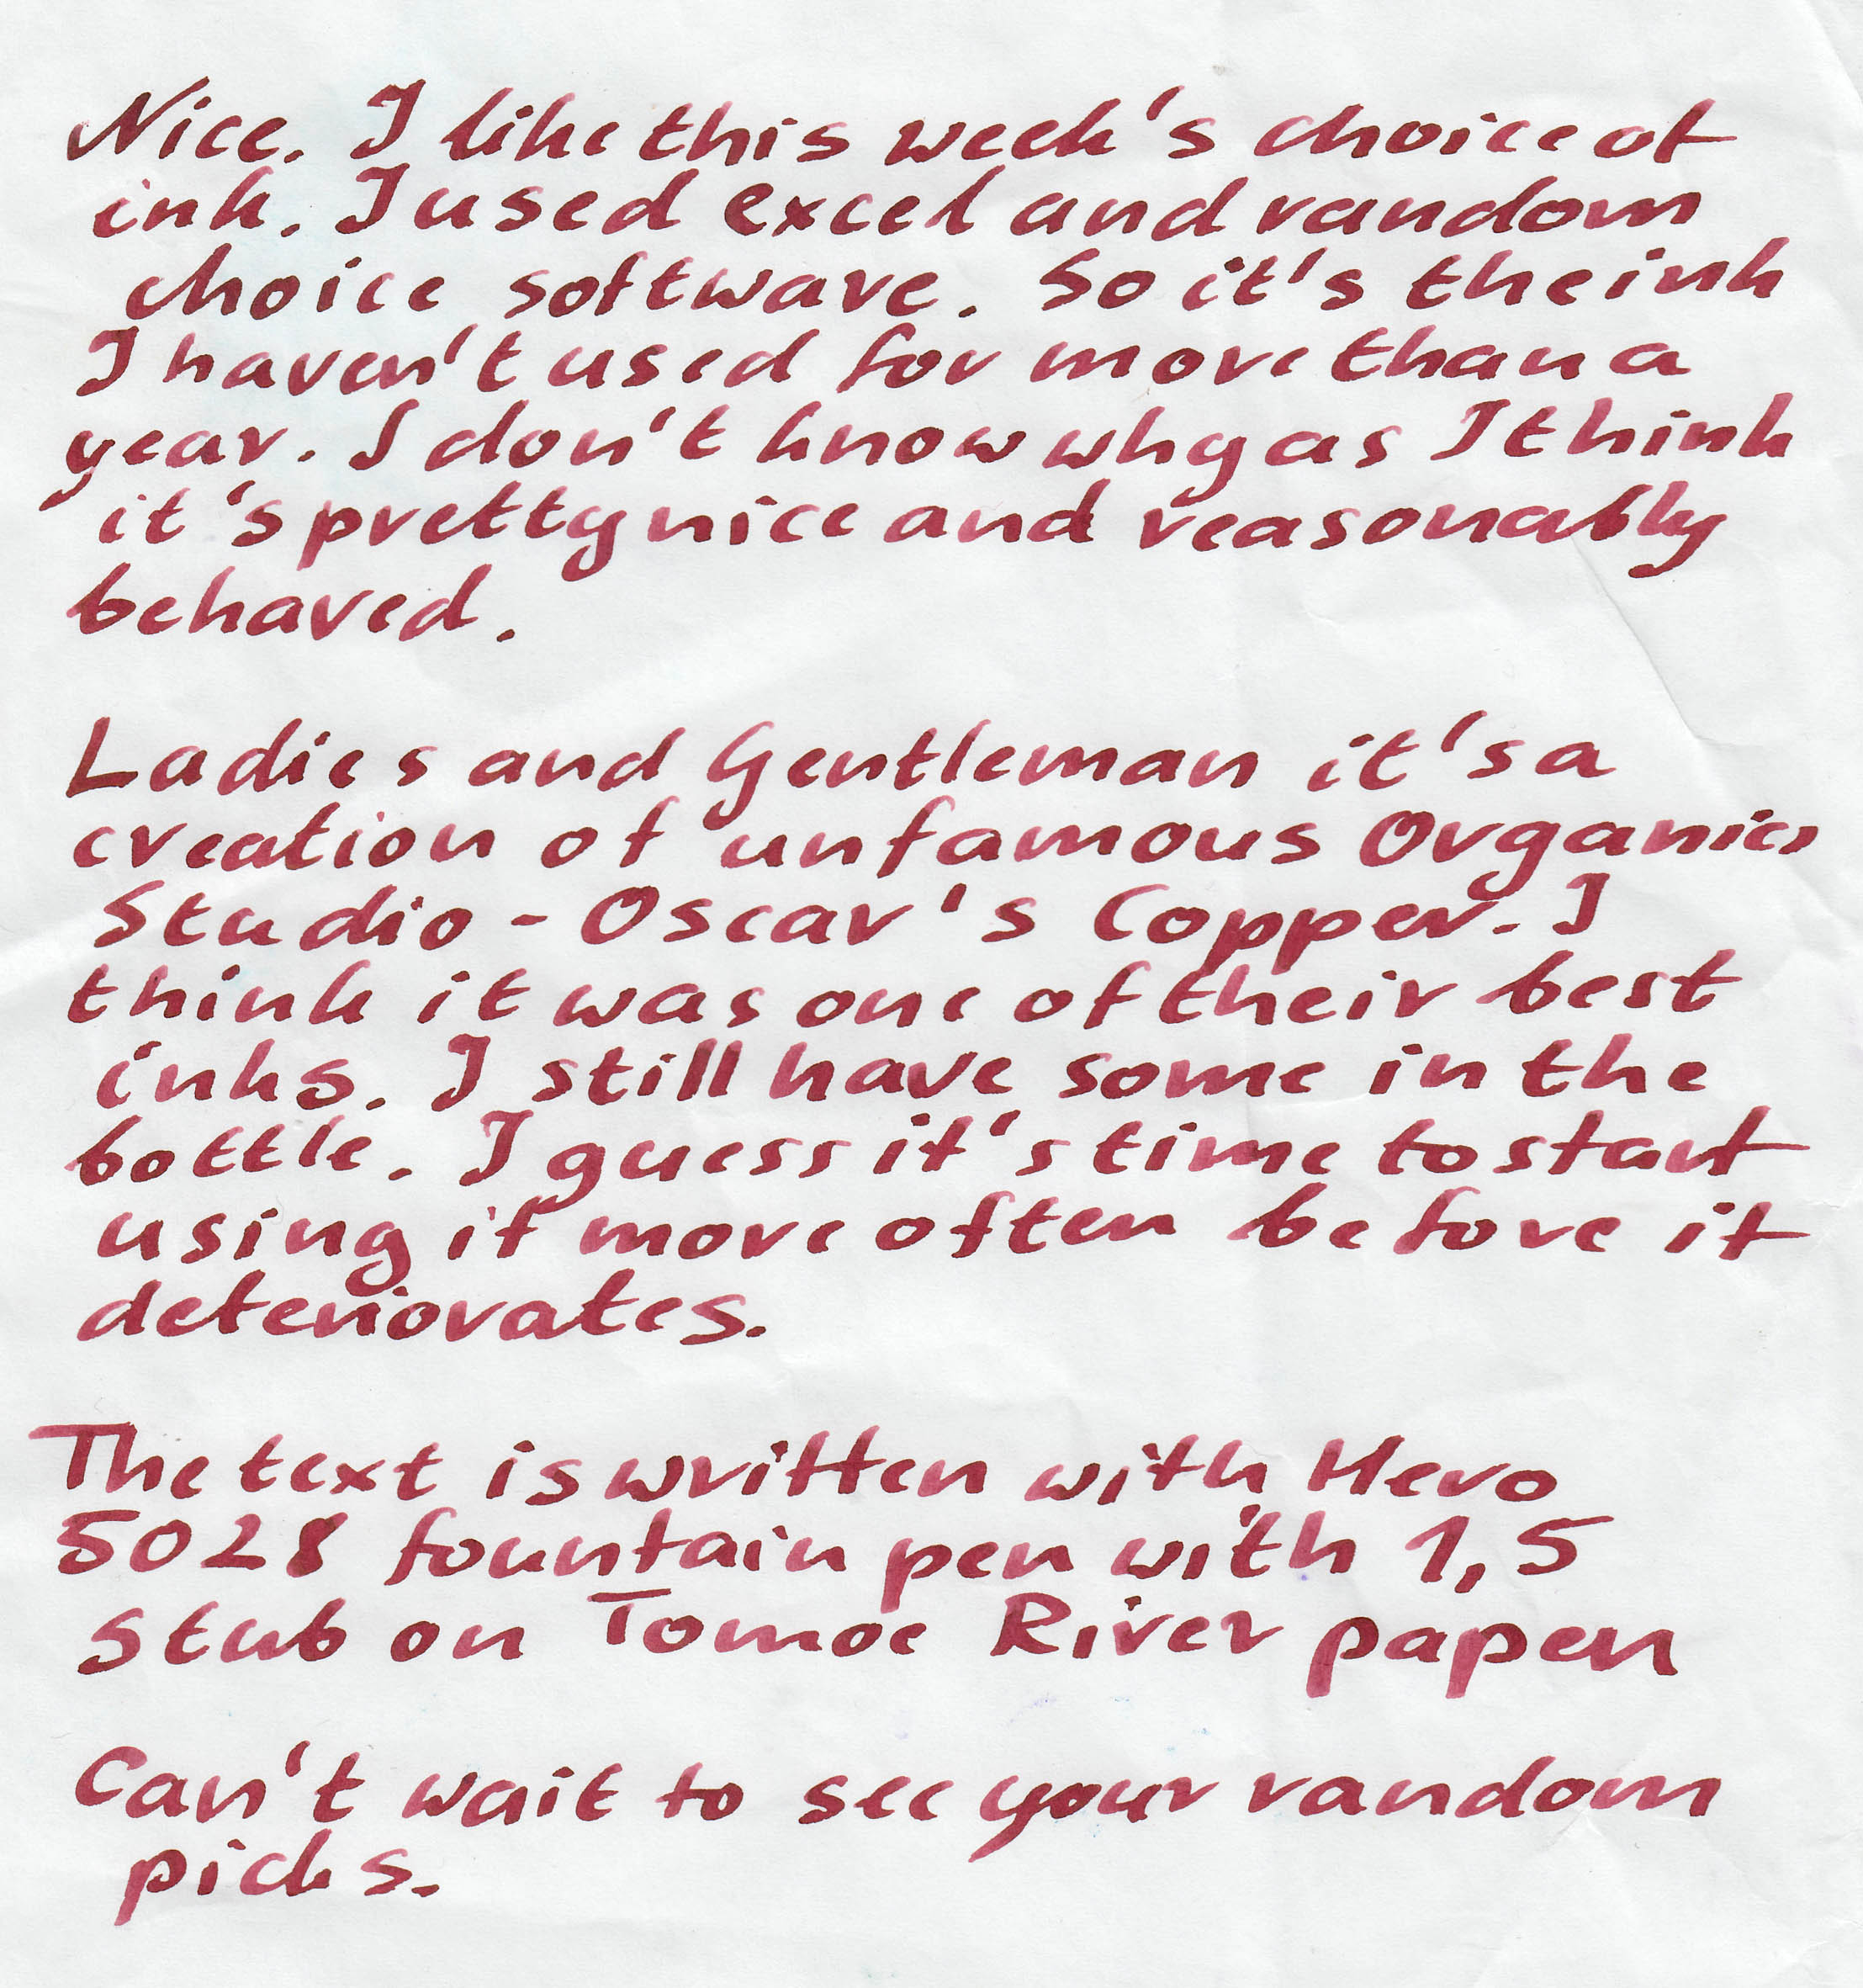 Nice. I like this week's choice of
ink. I used excel and random
choice software. So it's the ink
I haven't used for more than a
year. I don't know why as I think
it's pretty nice and reasonably
behaved.
Ladies and Gentleman it's a
creation of unfamous Organics
Studio - Oscar's Copper. I
think it was one of their best
inks. I still have some in the
bottle. I guess it's time to start
using it more often before it
deteriorates.
The text is written with Hero
5028 fountain pen with 1,5
stub on Tomoe River paper
Can't wait to see your random
picks.